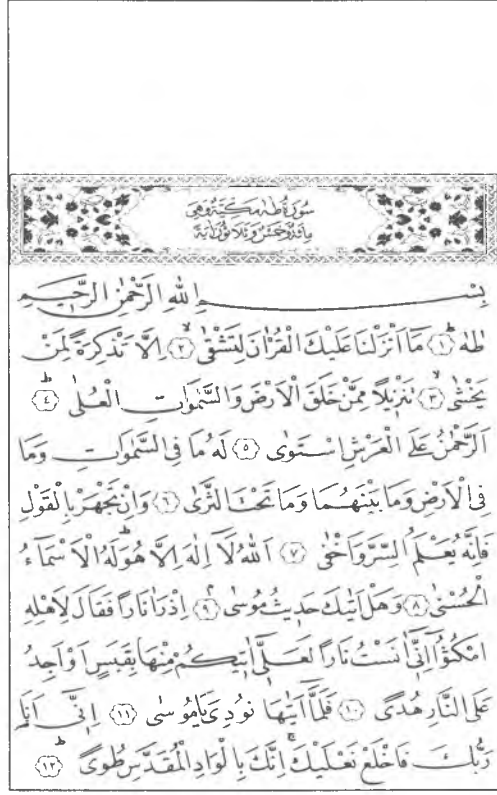 سُورَةُ طٰهٰ مَكِّيَّةٌ وَهِيَ
مِائَةٌ وَخَمْسٌ وَثَلَاثُونَ اٰيَةً
بِسْــــــمِ اللّٰهِ الرَّحْمٰنِ الرَّحٖيـــمِ
طٰهٰ ﴿١﴾ مَٓا اَنْزَلْنَا عَلَيْكَ الْقُرْاٰنَ لِتَشْقٰىۙ ﴿٢﴾ اِلَّا تَذْكِرَةً لِمَنْ
يَخْشٰىۙ ﴿٣﴾ تَنْزٖيلًا مِمَّنْ خَلَقَ الْاَرْضَ وَالسَّمٰوَاتِ الْعُلٰىؕ ﴿٤﴾
اَلرَّحْمٰنُ عَلَى الْعَرْشِ اسْــتَوٰى ﴿٥﴾ لَهُ مَا فِي السَّمٰوَاتِ وَمَا
فِي الْاَرْضِ وَمَا بَيْنَهُــمَا وَمَا تَحْتَ الثَّرٰى ﴿٦﴾ وَاِنْ تَجْهَرْ بِالْقَوْلِ
فَاِنَّهُ يَعْلَمُ السِّرَّ وَاَخْفٰى ﴿٧﴾ اَللّٰهُ لَٓا اِلٰهَ اِلَّا هُوَؕ لَهُ الْاَسْمَٓاءُ
الْحُسْنٰى ﴿٨﴾ وَهَلْ اَتٰيكَ حَدٖيثُ مُوسٰىۘ ﴿٩﴾ اِذْ رَاٰ نَارًا فَقَالَ لِاَهْلِهِ
امْكُثُٓوا اِنّٖٓي اٰنَسْتُ نَارًا لَعَــلّٖٓي اٰتٖيكُمْ مِنْهَا بِقَبَسٍ اَوْ اَجِدُ
عَلَى النَّارِ هُدًى ﴿١٠﴾ فَلَمَّٓا اَتٰيهَا نُودِيَ يَا مُوسٰى ﴿١١﴾ اِنّٖٓي اَنَا۬
رَبُّكَ فَاخْلَعْ نَعْــلَيْكَۚ اِنَّكَ بِالْوَادِ الْمُقَدَّسِ طُوًىؕ ﴿١٢﴾